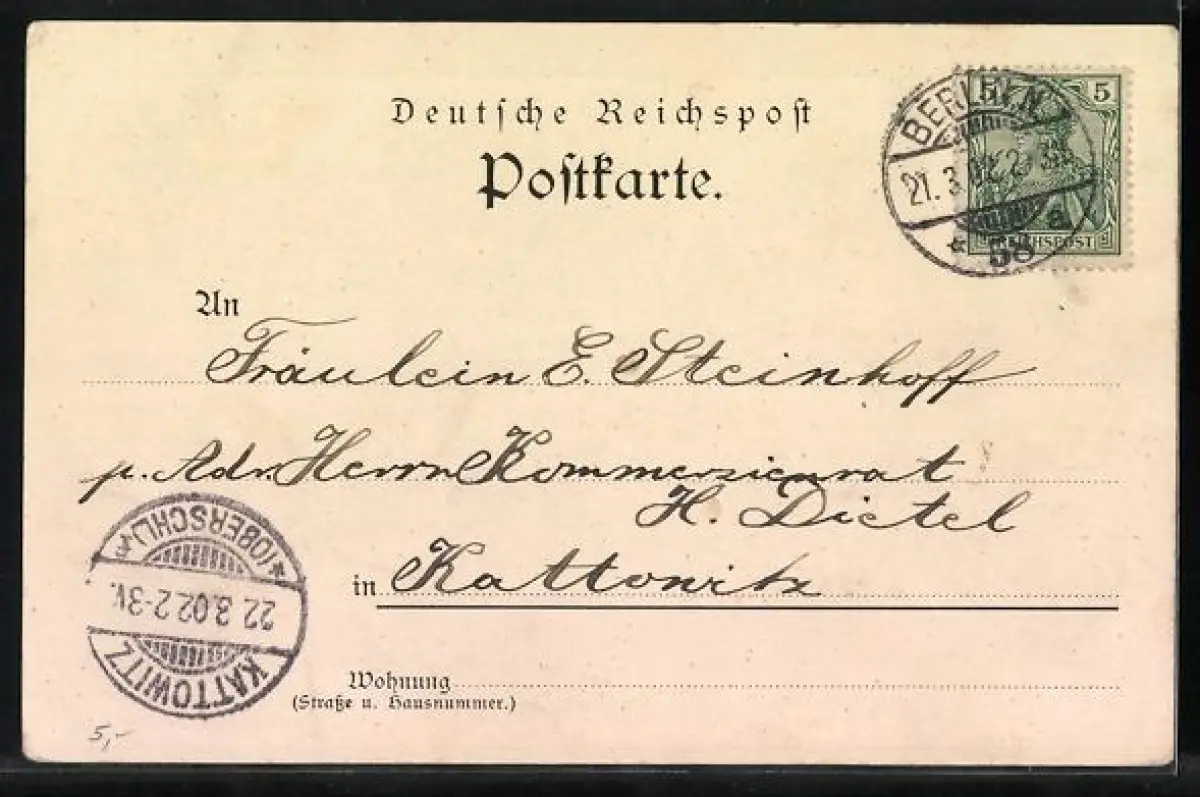 Deutſche Reichspost
Poſtkarte.
5 5
REICHSPOST
BERLIN, N
21. 3. 02. 2-3N
a
* 58
An
Fräulein E. Steinhoff
p. Adr. Herrn Kommerzienrat
H. Dietel
in Kattowitz
KATTOWITZ
22.3.02.2-3V.
*(OBERSCHL.)*
Wohnung
(Straße u. Hausnummer.)
5,-